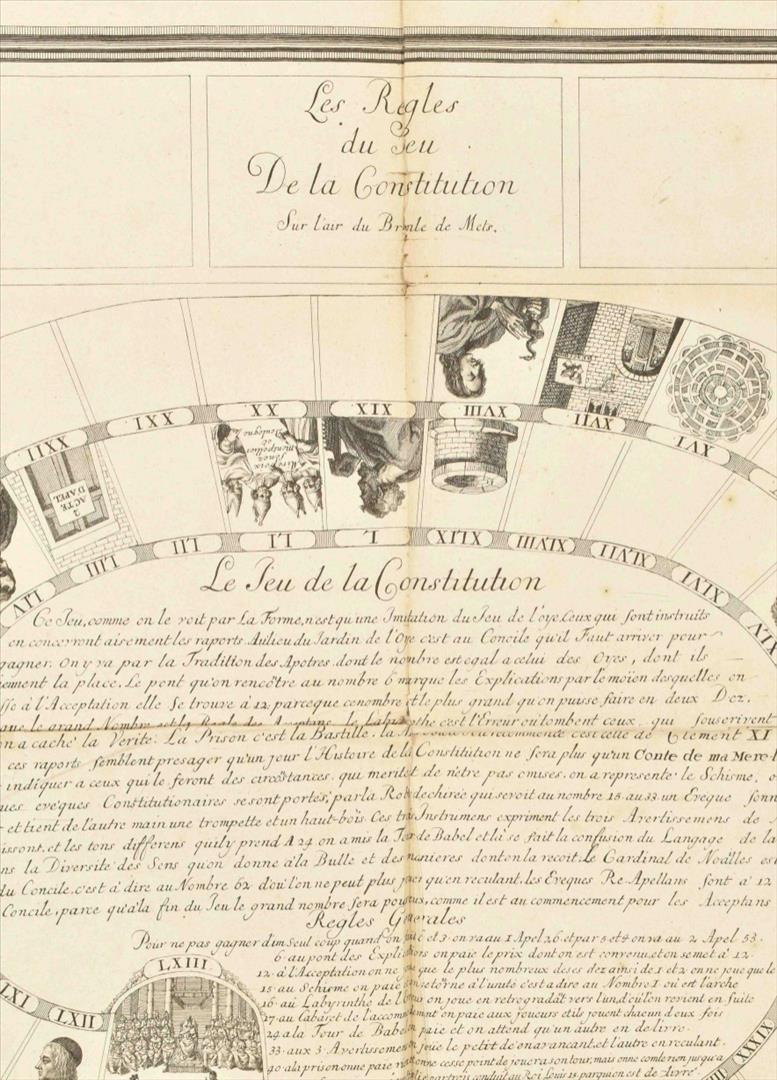 Les Regles
du Jeu
De la Constitution
Sur l'air du Branle de Mets.
XXII
XXI
XX
XIX
XVIII
XVII
XVI
2 ACTE D'APEL
Mirepoix
Senez
Montpellier
et
Boulogne
LIV
LIII
LII
LI
L
XLIX
XLVIII
XLVII
XLVI
XLV
Le Jeu de la Constitution
Ce Jeu, comme on le voit par La Forme, n'est qu'une Imitation du Jeu de l'oye. Ceux qui sont instruits
en concevront aisement les raports. Au lieu du Jardin de l'Oye c'est au Concile qu'il Faut arriver pour
gagner. On y va par la Tradition des Apotres. dont le nombre est egal a celui des Oyes, dont ils
nement la place. Le pont qu'on rencôtre au nombre 6 marque les Explications par le moien desquelles on
sse à l'Acceptation elle se trouve à 12. parceque ce nombre est le plus grand qu'on puisse faire en deux Dez.
que le grand Nombre est la Regle des Acceptans. le Labyrinthe c'est l'Erreur ou tombent ceux qui souscrivent
on a caché la Verité. La Prison c'est la Bastille. la recommence c'est celle de Clement XI
ces raports semblent presager qu'un jour l'Histoire de la Constitution ne sera plus qu'un Conte de ma Mere l
indiquer a ceux qui le feront des circôstances. qui meritet de n'etre pas omises. on a represente le Schisme, o
ques evêques Constitutionaires se sont portés, par la Robe dechirée qui se voit au nombre 15. au 33. un Eveque sonn
et tient de l'autre main une trompette et un haut-bois. Ces trois Instrumens expriment les trois Avertissemens de
issont, et les tons differens qu'il y prend A 24 on a mis la Tour de Babel et là se fait la confusion du Langage de la
ns la Diversité des Sens qu'on donne à la Bulle et des manieres dont on la recoit. Le Cardinal de Noâlles est
du Concile, c'est à dire au Nombre 62 d'où l'on ne peut plus jouer qu'en reculant. les Eveques Re-Apellans sont à 12
Concile, parce qu'à la fin du Jeu le grand nombre sera pour eux, comme il est au commencement pour les Acceptans
Regles Generales
Pour ne pas gagner d'un seul coup quand on fait 6 et 3. on va au 1 Apel 26 et par 5 et 4 on va au 2 Apel 53.
6 au pont des Explications on paie le prix dont on est convenu, et on se met à 12.
12. à l'Acceptation on ne que le plus nombreux de ses dez ainsi de 1 et 2 on ne joue que le
15. au Schisme on paie et on retourne à l'unité c'est a dire au Nombre I où est l'arche
16. au Labyrinthe de l'Erreur on joue en retrogradât vers l'un d'où l'on revient en suite
17. au Cabaret de l'accommodement on paie aux joueurs et ils jouent chacun deux fois
24 a la Tour de Babel on paie et on attend qu'un autre en delivre.
33. aux 3 Avertissemens on joue le petit dez en avancant, et l'autre en reculant.
40 a la prison on ne paie
LXIII
LXII
LXI
XXXIX